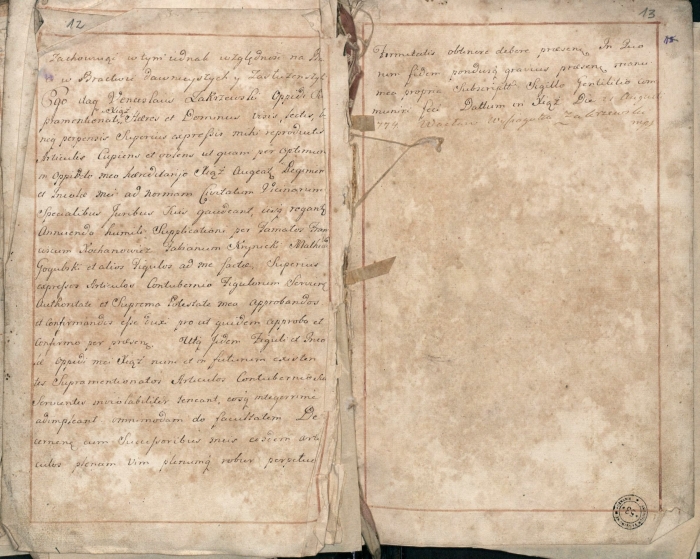 12
Zachowując w tym iednak wzgląd
w Bractwie dawnieyszych y Zasłużonszych
Ego itaq Venceslaus Zakrzewski Oppidi
pramentionati Xiąż Hæres et Dominus visis, lectis,
neq perpensis Superius expressis mihi reproductis
Articulis Cupiens et volens ut quam per optimum
in Oppido meo hæreditario Xiąż Augeat Regimen
et Incolæ mei ad normam Civitatum Vicinarum
Specialibus Juribus suis gaudeant, eosq rogantes
Annuendo humili Supplicationi per Famatos Fran
ciscum Kochanowicz Fabianum Knynicki Mathia
Gogulski et alios Figulos ad me factæ, Superius
expressos Articulos Contubernio Figulorum Servire
Authoritate et Suprema Potestate mea approbandos
et Confirmandos esse duxi pro ut quidem approbo et
Confirmo per præsens Utq Jidem Figuli et Inco
Oppidi mei Xiąż nunc et in futurum existen
tes Supramentionatos Articulos Contubernio
Servientes inviolabiliter teneant, eosq integerrime
adimpleant omnimodam do facultatem De
cernens cum Successoribus meis eosdem arti
culos plenam vim plenumq robur perpetuæ
13
firmitatis obtinere debere præsens In Quo
rum fidem pondusq gravius præsens manu
mea propria Subscripsi Sigillo Gentilitio com
muniri feci Dattum in Xiąż Die Augusti
774 Wacław Zakrzewski
mp